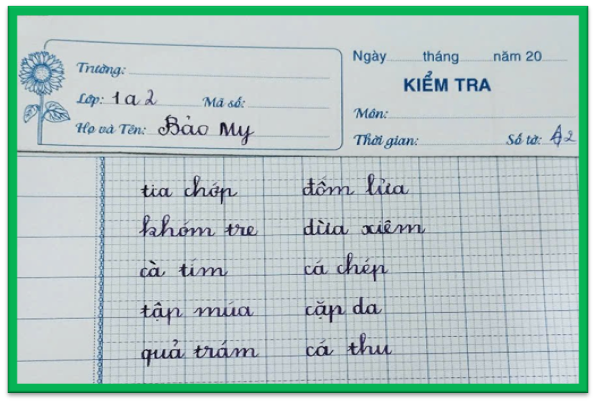 Ngày tháng năm 20
Trường:
KIỂM TRA
Lớp: 1a2 Mã số:
Môn:
Họ và Tên: Bảo My
Thời gian: Số tờ: 2
tia chớp đốm lửa
khóm tre dừa xiêm
cà tím cá chép
tập múa cặp da
quả trám cá thu